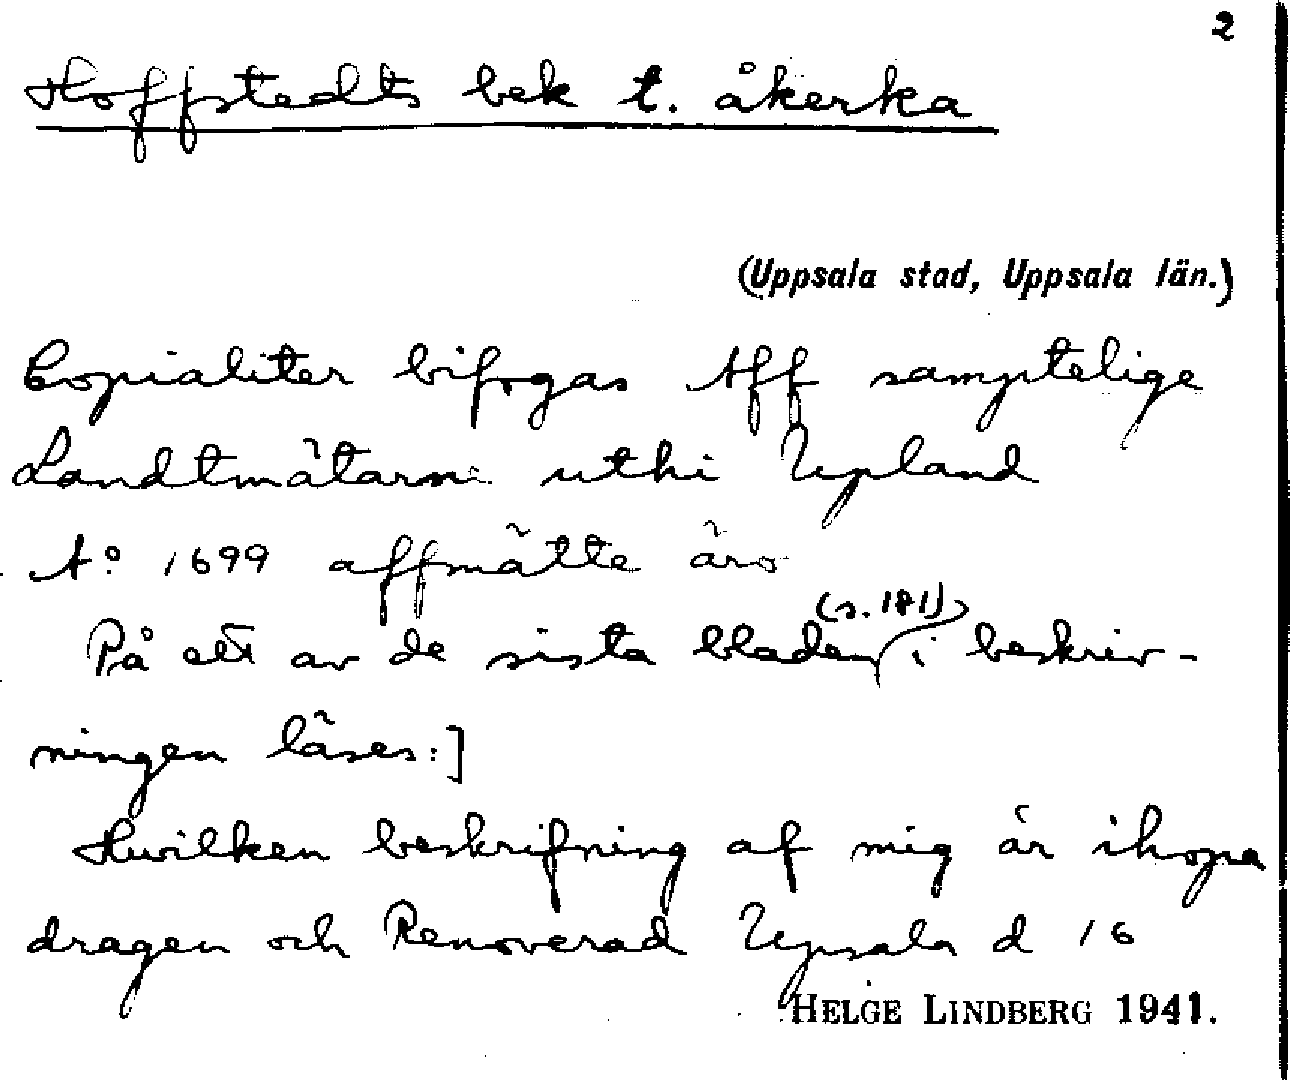 2
Hoffstedts bek t. åkerka
(Uppsala stad, Uppsala län.)
Copialiter bifogas Aff samptelige
Landtmätarne uthi Upland
A:o 1699 affmätte äro
(s. 181)
På ett av de sista bladen i beskriv-
ningen läses:]
Hwilken beskrifning af mig är ihopa
dragen och Renoverad Upsala d 16
HELGE LINDBERG 1941.